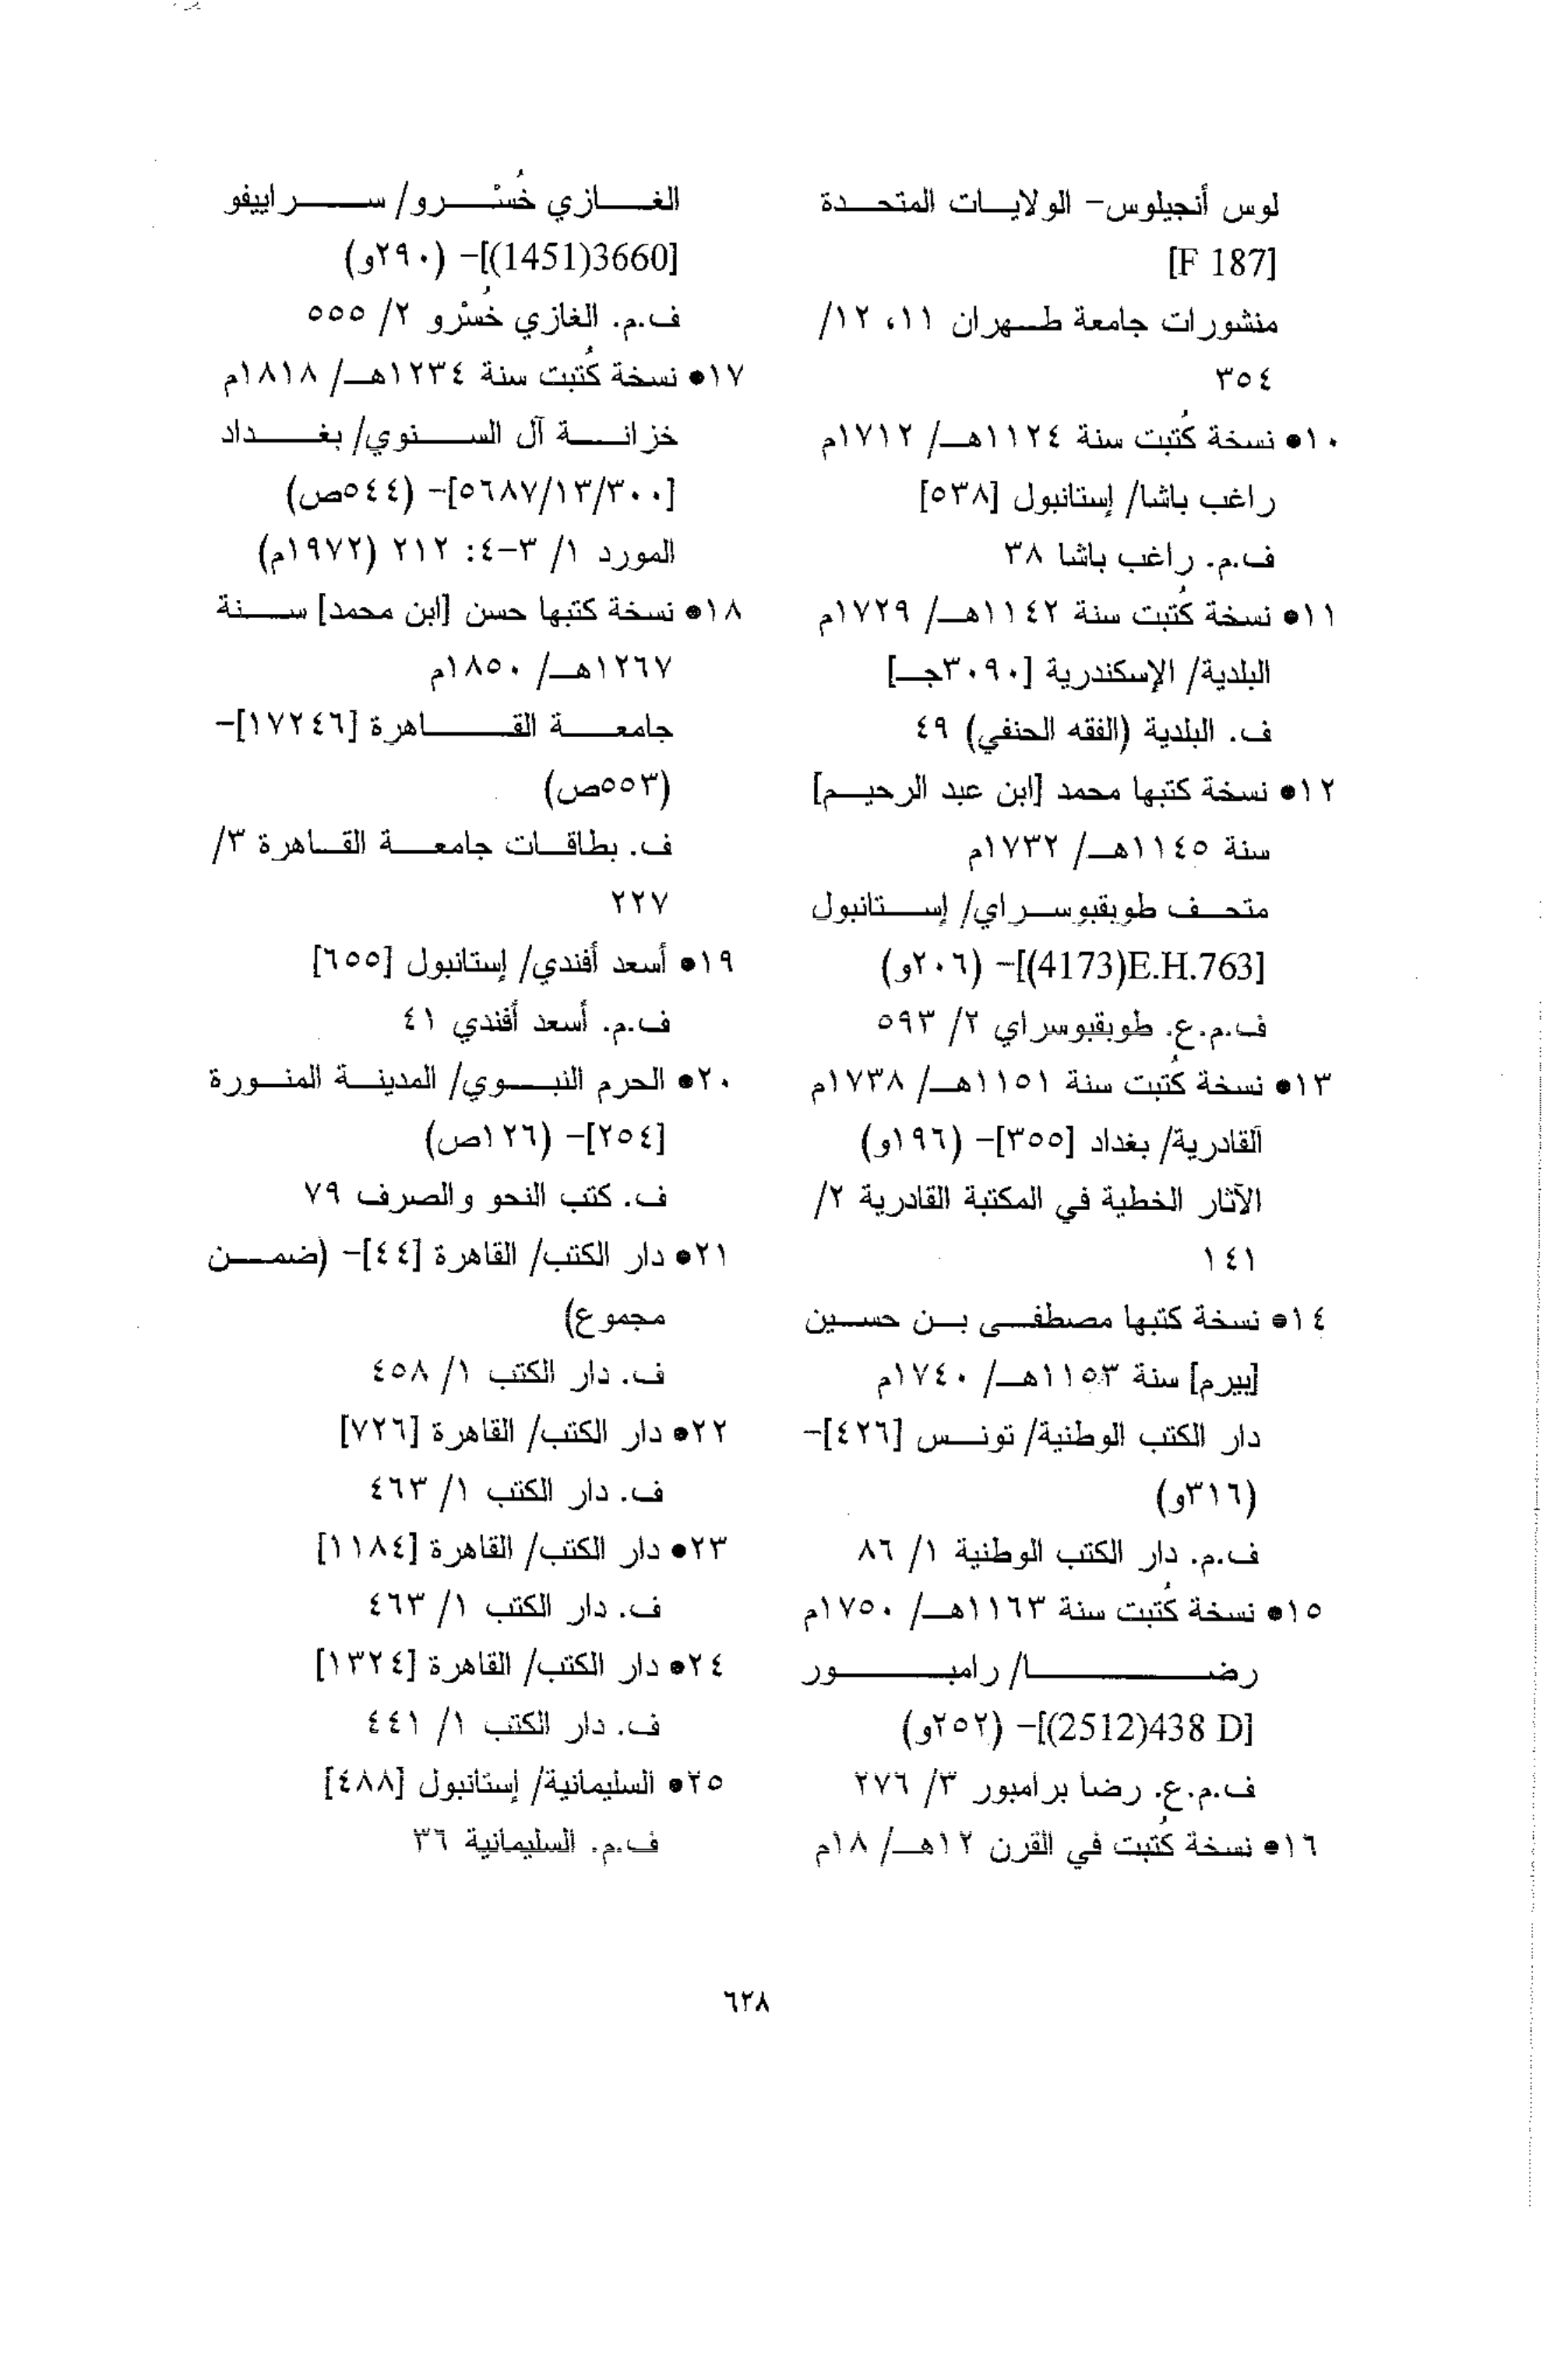 لوس أنجيلوس- الولايات المتحدة
[F 187]
منشورات جامعة طهران ١١، ١٢/
٣٥٤
١٠● نسخة كُتبت سنة ١١٢٤هـ/ ١٧١٢م
راغب باشا/ إستانبول [٥٣٨]
ف.م. راغب باشا ٣٨
١١● نسخة كُتبت سنة ١١٤٢هـ/ ١٧٢٩م
البلدية/ الإسكندرية [٣٠٩٠جـ]
ف. البلدية (الفقه الحنفي) ٤٩
١٢● نسخة كتبها محمد [ابن عبد الرحيم]
سنة ١١٤٥هـ/ ١٧٣٢م
متحف طوبقبوسراي/ إستانبول
[E.H.763(4173)]- (٢٠٦و)
ف.م.ع. طوبقبوسراي ٢/ ٥٩٣
١٣● نسخة كُتبت سنة ١١٥١هـ/ ١٧٣٨م
القادرية/ بغداد [٣٥٥]- (١٩٦و)
الآثار الخطية في المكتبة القادرية ٢/
١٤١
١٤● نسخة كتبها مصطفى بن حسين
[بيرم] سنة ١١٥٣هـ/ ١٧٤٠م
دار الكتب الوطنية/ تونس [٤٢٦]-
(٣١٦و)
ف.م. دار الكتب الوطنية ١/ ٨٦
١٥● نسخة كُتبت سنة ١١٦٣هـ/ ١٧٥٠م
رضا/ رامبور
[438 D(2512)]- (٢٥٢و)
ف.م.ع. رضا برامبور ٣/ ٢٧٦
١٦● نسخة كُتبت في القرن ١٢هـ/ ١٨م
الغازي خُسْرو/ سراييفو
[3660(1451)]- (٢٩٠و)
ف.م. الغازي خُسْرو ٢/ ٥٥٥
١٧● نسخة كُتبت سنة ١٢٣٤هـ/ ١٨١٨م
خزانة آل السنوي/ بغداد
[٥٦٨٧/١٣/٣٠٠]- (٥٤٤ص)
المورد ١/ ٣-٤: ٢١٢ (١٩٧٢م)
١٨● نسخة كتبها حسن [ابن محمد] سنة
١٢٦٧هـ/ ١٨٥٠م
جامعة القاهرة [١٧٢٤٦]-
(٥٥٣ص)
ف. بطاقات جامعة القاهرة ٣/
٢٢٧
١٩● أسعد أفندي/ إستانبول [٦٥٥]
ف.م. أسعد أفندي ٤١
٢٠● الحرم النبوي/ المدينة المنورة
[٢٥٤]- (١٢٦ص)
ف. كتب النحو والصرف ٧٩
٢١● دار الكتب/ القاهرة [٤٤]- (ضمن
مجموع)
ف. دار الكتب ١/ ٤٥٨
٢٢● دار الكتب/ القاهرة [٧٢٦]
ف. دار الكتب ١/ ٤٦٣
٢٣● دار الكتب/ القاهرة [١١٨٤]
ف. دار الكتب ١/ ٤٦٣
٢٤● دار الكتب/ القاهرة [١٣٢٤]
ف. دار الكتب ١/ ٤٤١
٢٥● السليمانية/ إستانبول [٤٨٨]
ف.م. السليمانية ٣٦
٦٢٨